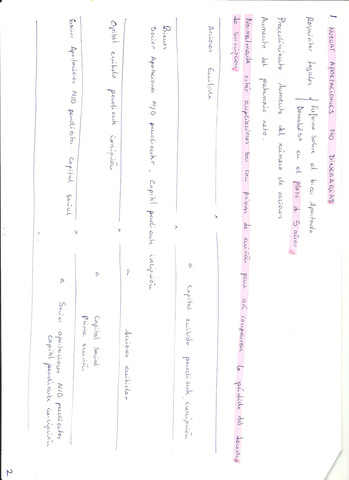 1 NUEVAS APORTACIONES NO DINERARIAS
Requisitos legales { Informe sobre el bien Aportado
Desembolso en el plazo de 5 años
Procedimiento Aumento del número de acciones
Aumento del patrimonio neto.
Normalmente estas ampliaciones son con primas de emisión para así compensar la pérdida del derecho
de suscripción
Acciones Emitidas x
a Capital emitido pendiente inscripción
x
Bienes
Socios Aportaciones N/D pendientes, Capital pendiente inscripción
a Acciones emitidas
x
Capital emitido pendiente inscripción
a Capital Social
Prima emisión
x
Socios Aportaciones N/D pendientes capital social
a Socios aportaciones N/D pendientes
capital pendiente inscripción
x
2